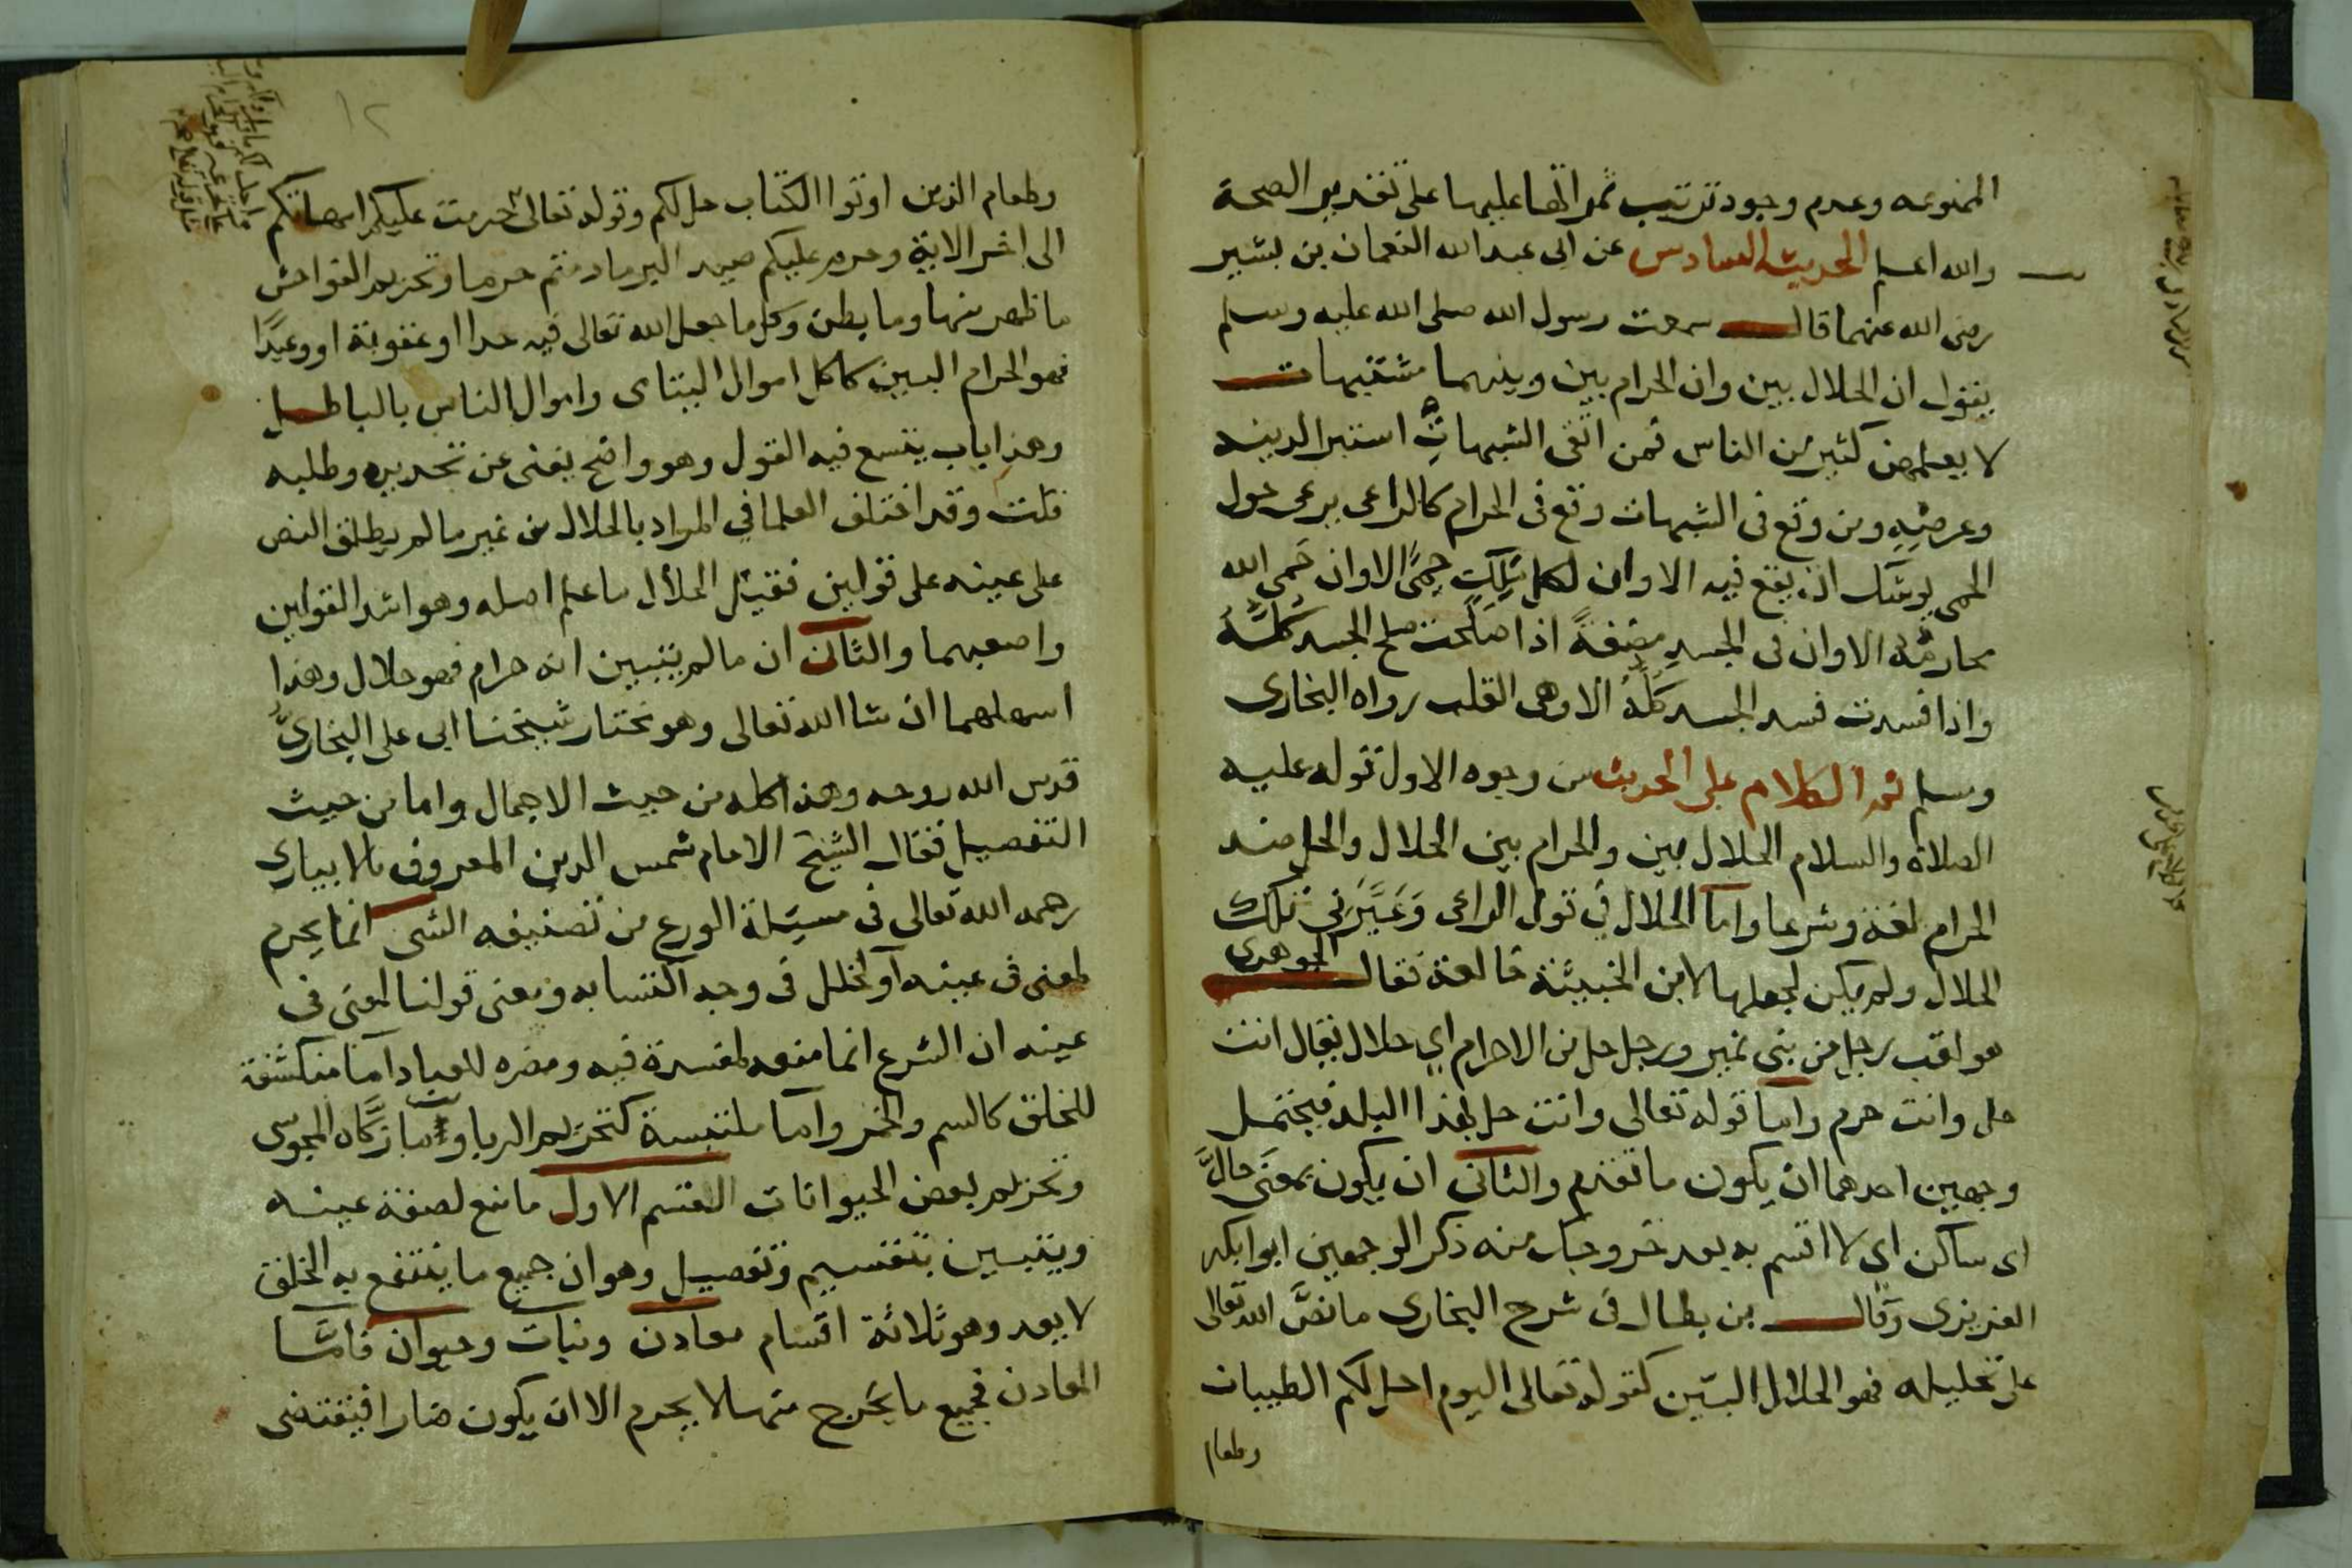 الممنوعه وعدم وجود ترتيب ثمراتها عليها على تقدير الصحة
والله اعلم الحديث السادس عن ابى عبد الله النعمان بن بشير
رضى الله عنهما قال سمعت رسول الله صلى الله عليه وسلم
يقول ان الحلال بين وان الحرام بين وبينهما مشتبهات
لا يعلمهن كثير من الناس فمن اتقى الشبهات استبرا لدينه
وعرضه ومن وقع فى الشبهات وقع فى الحرام كالراعى يرعى حول
الحمى يوشك ان يقع فيه الا وان لكل ملك حمى الا وان حمى الله
محارمه الا وان فى الجسد مضغة اذا صلحت صلح الجسد كله
واذا فسدت فسد الجسد كله الا وهى القلب رواه البخارى
ومسلم ثم الكلام على الحديث من وجوه الاول قوله عليه
الصلاة والسلام الحلال بين والحرام بين الحلال والحل ضد
الحرام لغة وشرعا واما الحلال في قول الراعى وعيرنى تلك
الحلال ولم يكن ليجعلها لابن الخبيثة خالقه فقال الجوهرى
هو لقب رجل من بنى نمير ورجل حل من الاحرام اي حلال يقال انت
حل وانت حرم واما قوله تعالى وانت حل بهذا البلد فيحتمل
وجهين احدهما ان يكون ما تقدم والثانى ان يكون بمعنى حال
اى ساكن اى لا اقسم به بعد خروجك منه ذكر الوجهين ابوا بكر
العزيزى وقال بن بطال فى شرح البخارى ما نص الله تعالى
على تحليله فهو الحلال البين كقوله تعالى اليوم احل لكم الطيبات
وطعام
١٢
وطعام الذين اوتوا الكتاب حل لكم وقوله تعالى حرمت عليكم امهاتكم
الى اخر الاية وحرم عليكم صيد البر ما دمتم حرما وتحريم الفواحش
ما ظهر منها وما بطن وكل ما جعل الله تعالى فيه حدا او عقوبة او وعيدا
فهو الحرام البين كاكل اموال اليتامى واموال الناس بالباطل
وهذا باب يتسع فيه القول وهو واضح يغنى عن تحديره وطلبه
قلت وقد اختلف العلما في المراد بالحلال من غير ما لم يطلق النص
على عينه على قولين فقيل الحلال ما علم اصله وهو اشد القولين
واصعبهما والثان ان ما لم يتبين انه حرام فهو حلال وهذا
اسهلهما ان شا الله تعالى وهو نختار شيخنا ابى على البخارى
قدس الله روحه وهذا كله من حيث الاجمال واما من حيث
التفصيل فقال الشيخ الامام شمس الدين المعروف بالابيارى
رحمه الله تعالى فى مسئلة الورع من تصنيفه الشى انما يحرم
لمعنى فى عينه او لخلل فى وجه اكتسابه ومعنى قولنا لمعنى فى
عينه ان الشرع انما منعه لمفسدة فيه ومضره للعباد اما منكشفة
للخلق كالسم والخمر واما ملتبسة كتحريم الربا وما زكاه المجوسى
وتحريم بعض الحيوانات القسم الاول ما منع لصفة عينه
ويتبين بتقسيم وتفصيل وهو ان جميع ما ينتفع به الخلق
لا يعد وهو ثلاثة اقسام معادن ونبات وحيوان فاما
المعادن فجميع ما يخرج منها لا يحرم الا ان يكون ضارا فيقتضى